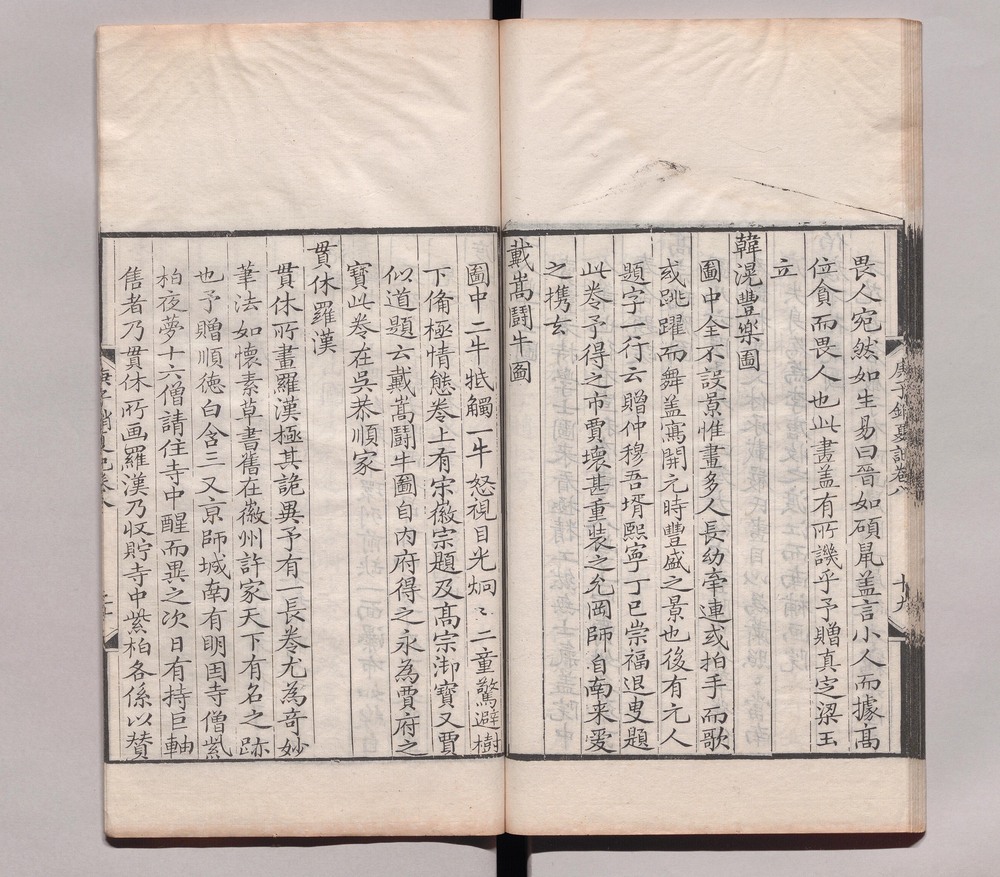 畏人宛然如生易曰晉如碩鼠盖言小人而據髙
位貪而畏人也此畫盖有所譏乎予贈真定梁玉
立
韓滉豐樂圖
圖中全不設景惟畫多人長幼牽連或拍手而歌
或跳躍而舞盖寫開元時豐盛之景也後有元人
題字一行云贈仲穆吾壻熙寧丁巳崇福退叟題
此卷予得之市賈壊甚重裝之允岡師自南来愛
之携去
戴嵩鬪牛圖
圖中二牛牴觸一牛怒視目光炯〻二童驚避樹
下俻極情態卷上有宋徽宗題及髙宗御寶又賈
似道題云戴嵩鬪牛圖自内府得之永為賈府之
寶此卷在吳恭順家
貫休羅漢
貫休所畫羅漢極其詭異予有一長卷尤為竒妙
筆法如懷素草書舊在徽州許家天下有名之跡
也予贈順德白含三又京師城南有明因寺僧紫
柏夜夢十六僧請住寺中醒而異之次日有持巨軸
售者乃貫休所画羅漢乃収貯寺中紫柏各係以賛
庚子銷夏記卷八
十九
庚子銷夏記卷八
二十